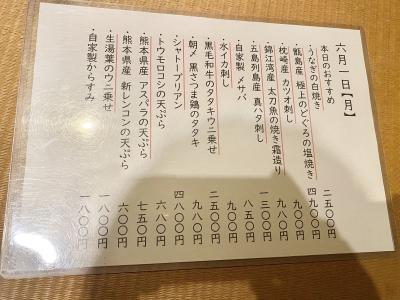 六月一日【月】
本日のおすすめ
・うなぎの白焼き 二五〇〇円
・甑島産 極上のどぐろの塩焼き 四九〇〇円
・枕崎産 カツオ刺し 九八〇円
・錦江湾産 太刀魚の焼き霜造り 九八〇円
・五島列島産 真ハタ刺し 一三〇〇円
・自家製 〆サバ 八五〇円
・水イカ刺し
・黒毛和牛のタタキウニ乗せ
・朝〆 黒さつま鶏のタタキ 九八〇円
・シャトーブリアン 四八〇〇円
・トウモロコシの天ぷら 六八〇円
・熊本県産 アスパラの天ぷら 七五〇円
・熊本県産 新レンコンの天ぷら 六〇〇円
・生湯葉のウニ乗せ 一八〇〇円
・自家製からすみ 一八〇〇円